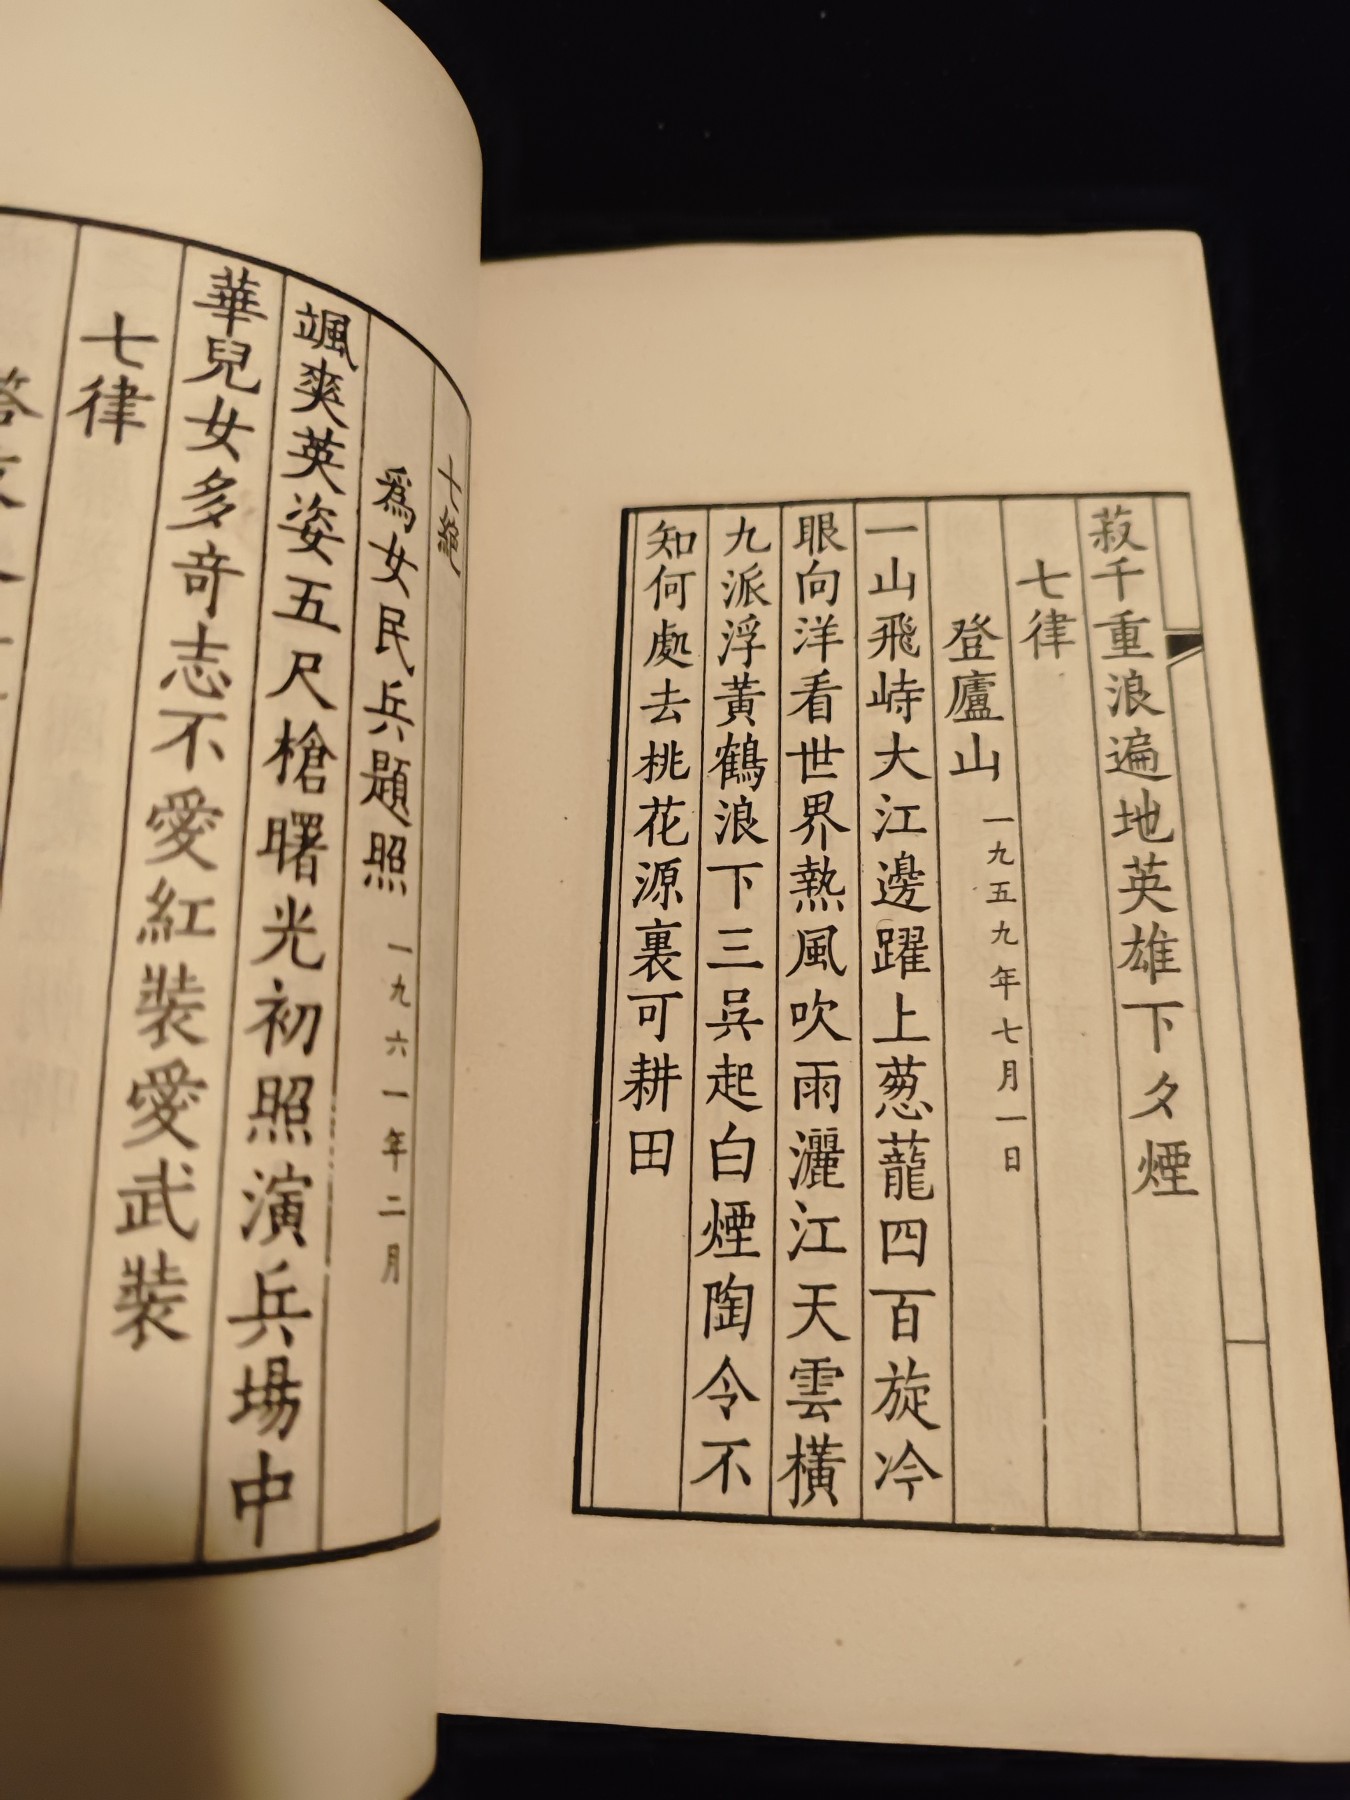 菽千重浪遍地英雄下夕煙
七律
登廬山 一九五九年七月一日
一山飛峙大江邊躍上葱蘢四百旋冷
眼向洋看世界熱風吹雨灑江天雲橫
九派浮黃鶴浪下三吳起白煙陶令不
知何處去桃花源裏可耕田
七絕
爲女民兵題照 一九六一年二月
颯爽英姿五尺槍曙光初照演兵場中
華兒女多奇志不愛紅裝愛武裝
七律